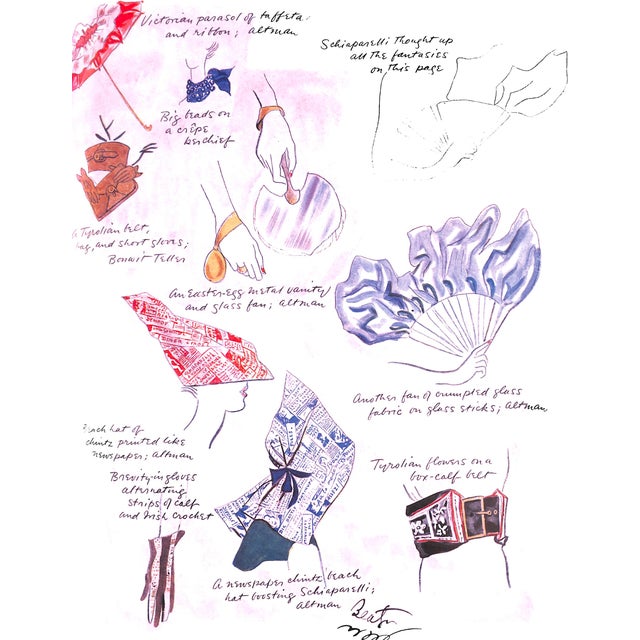 Victorian parasol of taffeta
and ribbon; Altman
Schiaparelli thought up
all the fantasies
on this page
Big beads on
a crêpe
kerchief
A Tyrolian belt,
bag, and short gloves;
Bonwit Teller
An Easter-egg metal vanity
and glass fan; Altman
Another fan of crumpled glass
fabric on glass sticks; Altman
hat of
chintz printed like
newspaper; Altman
Brevity in gloves
alternating
strips of calf
and Irish crochet
Tyrolian flowers on a
box-calf belt
A newspaper chintz beach
hat boosting Schiaparelli;
Altman